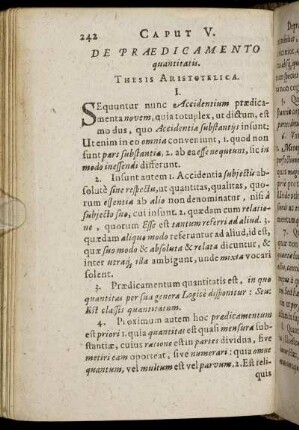 242 CAPUT V.
DE PRÆDICAMENTO
quantitatis.
THESIS ARISTOTELICA.
I.
SEquuntur nunc Accidentium prædica-
menta novem, quia totuplex, ut dictum, est
modus, quo Accidentia substantijs insunt:
Ut enim in eo omnia conveniunt, 1. quod non
sunt pars substantiæ, 2. ab ea esse nequeunt, sic in
modo inessendi differunt.
2. Insunt autem 1. Accidentia subjectis ab-
solutè sine respectu, ut quantitas, qualitas, quo-
rum essentia ab alio non denominatur, nisi à
subjecto suo, cui insunt. 2. quædam cum relatio-
ne, quorum Esse est tantum referri ad aliud. 3.
quædam aliquo modo referuntur ad aliud, id est,
quæ suo modo & absoluta & relata dicuntur, &
inter utraq, illa ambigunt, unde mixta vocari
solent.
3. Prædicamentum quantitatis est, in quo
quantitas per sua genera Logicè disponitur: Seu:
Est classis quantitatum.
4. Proximum autem hoc prædicamentum
est priori 1. quia quantitas est quasi mensura sub-
stantiæ, cuius ratione est in partes dividua, sive
metiri eam oporteat, sive numerari: quia omne
quantum, vel multum est vel parvum. 2. Est reli-
quis